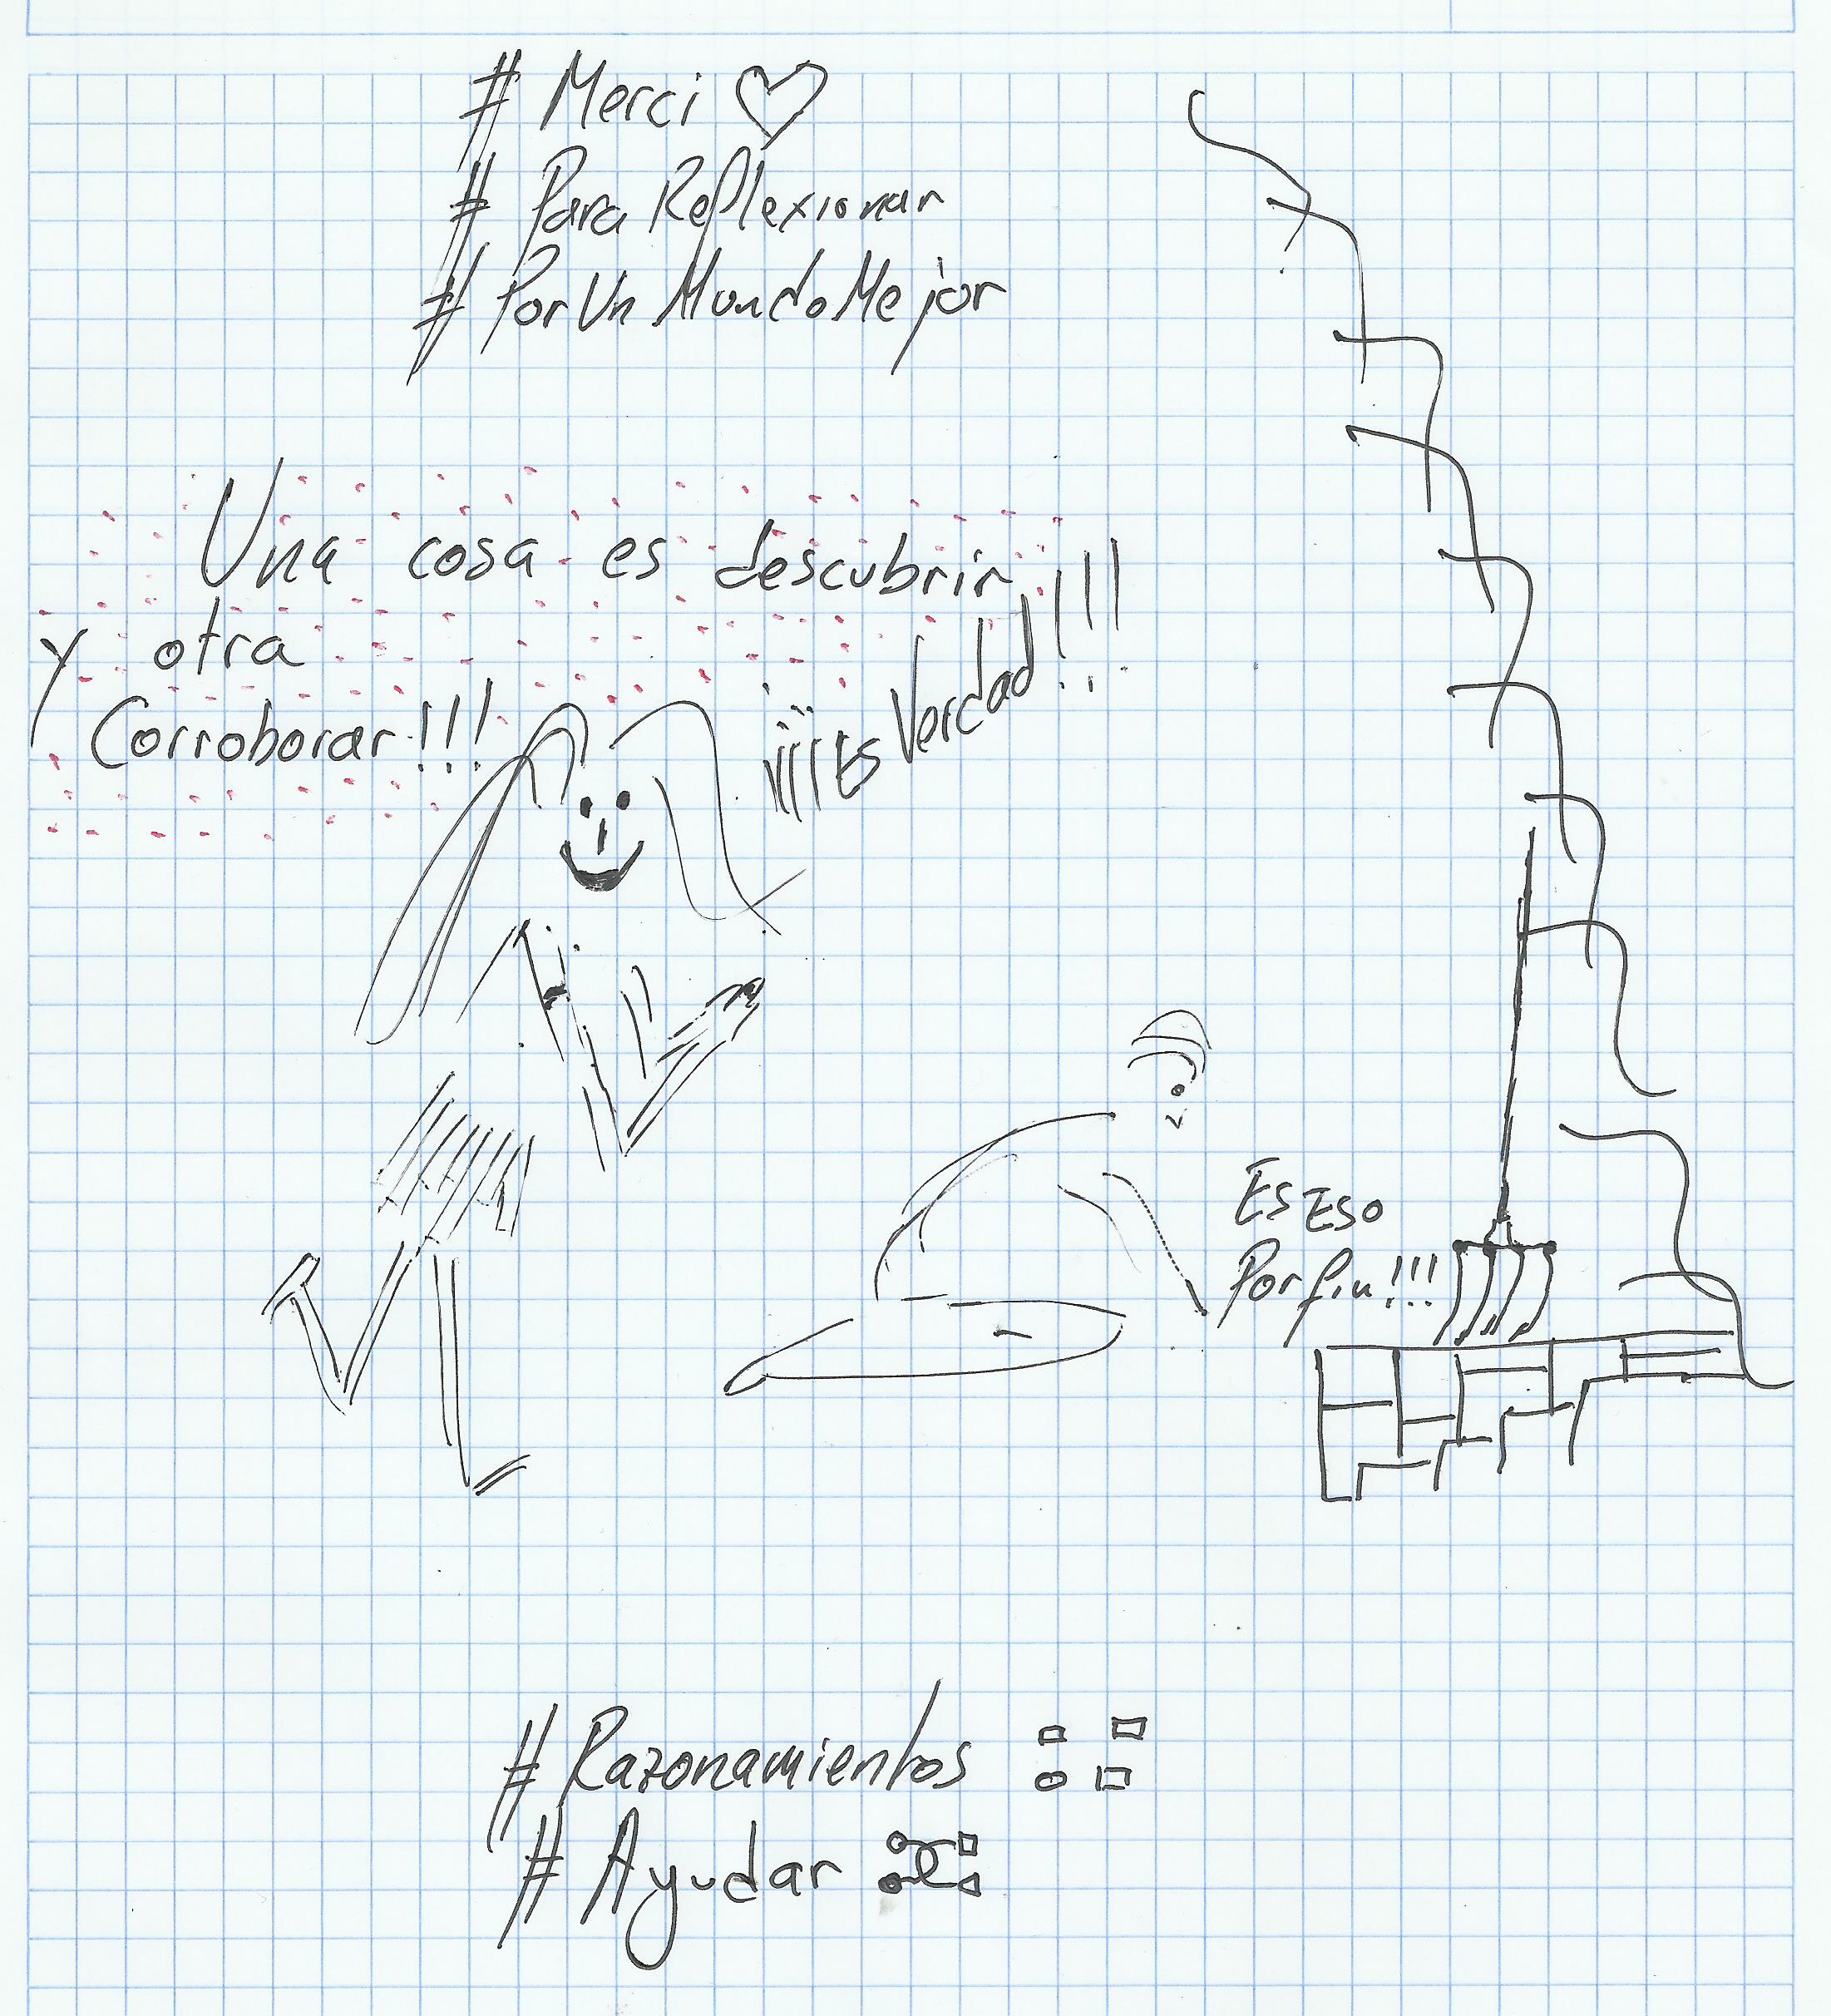 # Merci ♡
# Para Reflexionar
# PorUnMundoMejor
Una cosa es descubrir
y otra
Corroborar!!!
¡¡¡¡Es Verdad!!!
Es Eso
Por fin!!!
# Razonamientos
# Ayudar